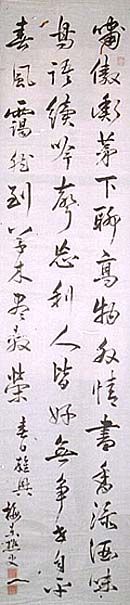 嘯傲衡茅下聊高物外情書香添酒味
鳥語續吟聲忘利人皆好無爭世自平
春風靄然到草木盡敷榮 春日雜興